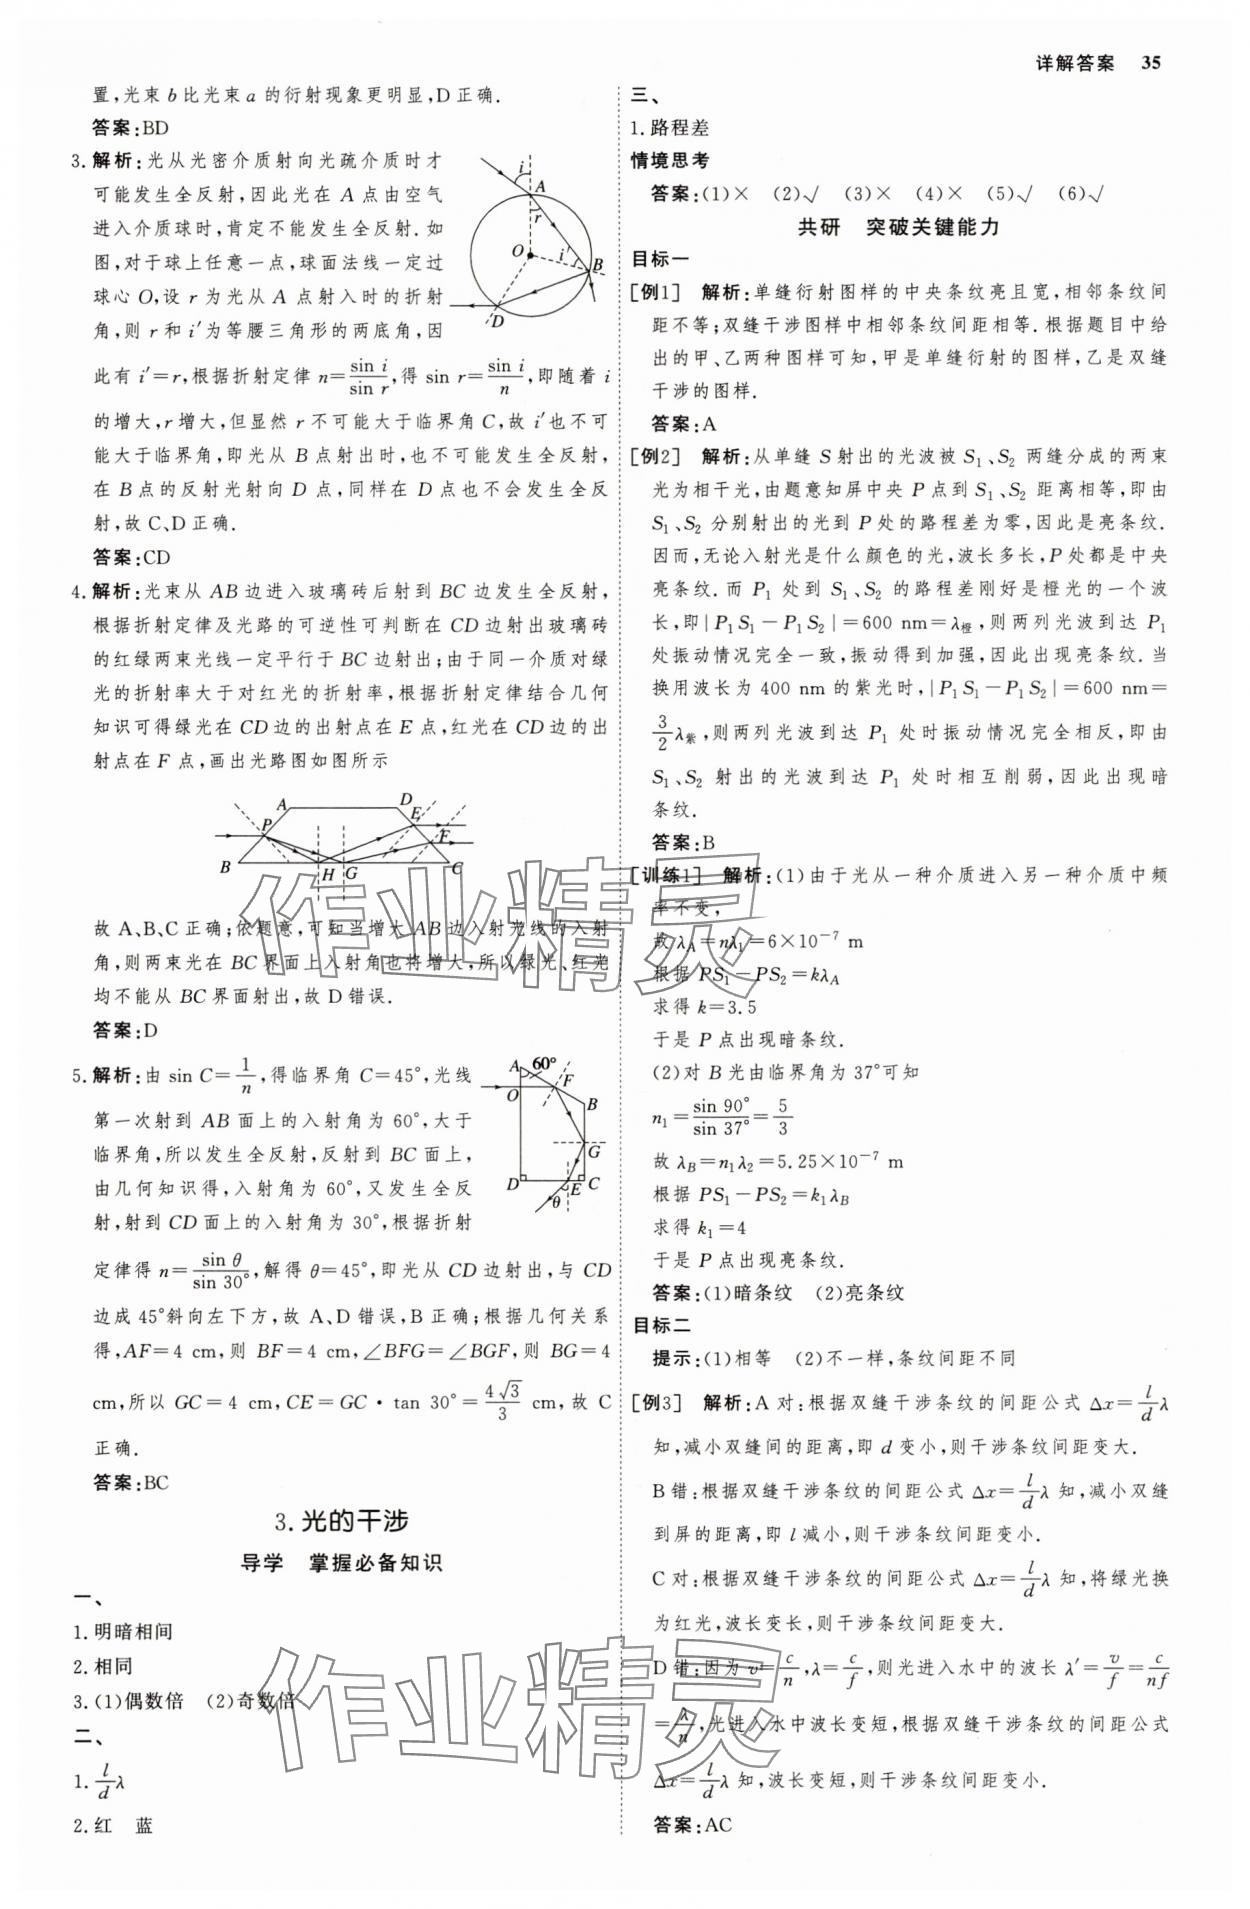 详解答案 35
置,光束 b 比光束 a 的衍射现象更明显,D正确.
答案:BD
3.解析:光从光密介质射向光疏介质时才
可能发生全反射,因此光在 A 点由空气
进入介质球时,肯定不能发生全反射.如
图,对于球上任意一点,球面法线一定过
球心 O,设 r 为光从 A 点射入时的折射
角,则 r 和 i′为等腰三角形的两底角,因
i
A
r
O
i′
B
D
此有 i′=r,根据折射定律 n=sin i/sin r,得 sin r=sin i/n,即随着 i
的增大,r 增大,但显然 r 不可能大于临界角 C,故 i′也不可
能大于临界角,即光从 B 点射出时,也不可能发生全反射,
在 B 点的反射光射向 D 点,同样在 D 点也不会发生全反
射,故 C、D正确.
答案:CD
4.解析:光束从 AB 边进入玻璃砖后射到 BC 边发生全反射,
根据折射定律及光路的可逆性可判断在 CD 边射出玻璃砖
的红绿两束光线一定平行于 BC 边射出;由于同一介质对绿
光的折射率大于对红光的折射率,根据折射定律结合几何
知识可得绿光在 CD 边的出射点在 E 点,红光在 CD 边的出
射点在 F 点,画出光路图如图所示
A D
P E
F
B H G C
故 A、B、C 正确;依题意,可知当增大 AB 边入射光线的入射
角,则两束光在 BC 界面上入射角也将增大,所以绿光、红光
均不能从 BC 界面射出,故 D 错误.
答案:D
5.解析:由 sin C=1/n,得临界角 C=45°,光线
第一次射到 AB 面上的入射角为 60°,大于
临界角,所以发生全反射,反射到 BC 面上,
由几何知识得,入射角为 60°,又发生全反
射,射到 CD 面上的入射角为 30°,根据折射
A 60°
F
O
B
G
D E C
θ
定律得 n=sin θ/sin 30°,解得 θ=45°,即光从 CD 边射出,与 CD
边成 45°斜向左下方,故 A、D 错误,B 正确;根据几何关系
得,AF=4 cm,则 BF=4 cm,∠BFG=∠BGF,则 BG=4
cm,所以 GC=4 cm,CE=GC·tan 30°=4√3/3 cm,故 C
正确.
答案:BC
3.光的干涉
导学 掌握必备知识
一、
1.明暗相间
2.相同
3.(1)偶数倍 (2)奇数倍
二、
1.l/d λ
2.红 蓝
三、
1.路程差
情境思考
答案:(1)× (2)√ (3)× (4)× (5)√ (6)√
共研 突破关键能力
目标一
[例1] 解析:单缝衍射图样的中央条纹亮且宽,相邻条纹间
距不等;双缝干涉图样中相邻条纹间距相等.根据题目中给
出的甲、乙两种图样可知,甲是单缝衍射的图样,乙是双缝
干涉的图样.
答案:A
[例2] 解析:从单缝 S 射出的光波被 S₁、S₂ 两缝分成的两束
光为相干光,由题意知屏中央 P 点到 S₁、S₂ 距离相等,即由
S₁、S₂ 分别射出的光到 P 处的路程差为零,因此是亮条纹.
因而,无论入射光是什么颜色的光,波长多长,P 处都是中央
亮条纹.而 P₁ 处到 S₁、S₂ 的路程差刚好是橙光的一个波
长,即|P₁S₁-P₁S₂|=600 nm=λ橙,则两列光波到达 P₁
处振动情况完全一致,振动得到加强,因此出现亮条纹.当
换用波长为 400 nm 的紫光时,|P₁S₁-P₁S₂|=600 nm=
3/2 λ紫,则两列光波到达 P₁ 处时振动情况完全相反,即由
S₁、S₂ 射出的光波到达 P₁ 处时相互削弱,因此出现暗
条纹.
答案:B
[训练1] 解析:(1)由于光从一种介质进入另一种介质中频
率不变,
故 λA=nλ₁=6×10⁻⁷ m
根据 PS₁-PS₂=kλA
求得 k=3.5
于是 P 点出现暗条纹.
(2)对 B 光由临界角为 37°可知
n₁=sin 90°/sin 37°=5/3
故 λB=n₁λ₂=5.25×10⁻⁷ m
根据 PS₁-PS₂=k₁λB
求得 k₁=4
于是 P 点出现亮条纹.
答案:(1)暗条纹 (2)亮条纹
目标二
提示:(1)相等 (2)不一样,条纹间距不同
[例3] 解析:A 对:根据双缝干涉条纹的间距公式 Δx=l/d λ
知,减小双缝间的距离,即 d 变小,则干涉条纹间距变大.
B 错:根据双缝干涉条纹的间距公式 Δx=l/d λ 知,减小双缝
到屏的距离,即 l 减小,则干涉条纹间距变小.
C 对:根据双缝干涉条纹的间距公式 Δx=l/d λ 知,将绿光换
为红光,波长变长,则干涉条纹间距变大.
D 错:因为 v=c/n,λ=c/f,则光进入水中的波长 λ′=v/f=c/nf
=λ/n,光进入水中波长变短,根据双缝干涉条纹的间距公式
Δx=l/d λ 知,波长变短,则干涉条纹间距变小.
答案:AC
作业精灵
作业精灵